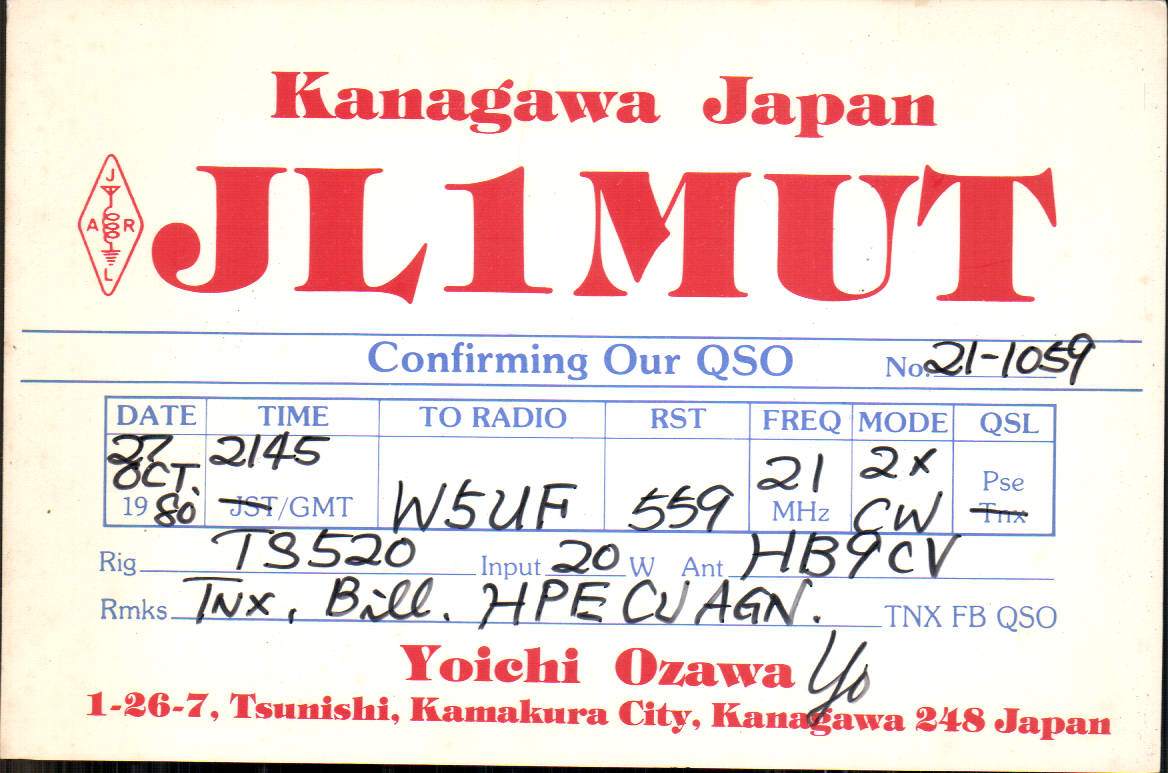 Kanagawa Japan
J
A R
L
JL1MUT
Confirming Our QSO No. 21-1059
DATE TIME TO RADIO RST FREQ MODE QSL
27 OCT. 1980 2145 JST/GMT W5UF 559 21 MHz 2x CW Pse Tnx
Rig TS520 Input 20 W Ant HB9CV
Rmks Tnx, Bill. HPE CU AGN. TNX FB QSO
Yoichi Ozawa Yo
1-26-7, Tsunishi, Kamakura City, Kanagawa 248 Japan